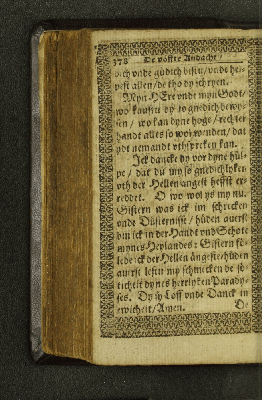 378 De vöffte Andacht/
dich vnde güdich bist/ vnde hel-
pest allen/ de tho dy schryen.
Myn HEre vndt myn Godt/
wo kanstu dy so gnedich bewy-
sen/ wo kan dyne hoge/ rechter
handt alles so wol wenden/ dat
ydt nemandt vthspreken kan.
Ick dancke dy vor dyne hül-
pe/ dat du my so gnedichlyken
vth der Hellen angest heffst er-
reddet. O wo wol ys my nu.
Gistern was ick im schrecken
vnde Düsternisse/ hüden auerst
bin ick in der Handt vnd Schote
mynes Heylandes: Gistern fö-
lede ick der Hellen angeste/ hüden
auerst lestu my schmecken de sö-
ticheit dynes herrlyken Parady-
ses. Dy sy Loff vnde Danck in
ewicheit/ Amen.